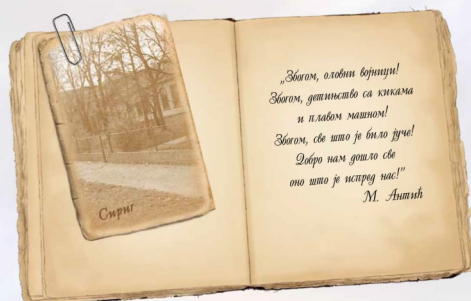 Сириг
„Збогом, оловни војници!
Збогом, детињство са кикама
и плавом машном!
Збогом, све што је било јуче!
Добро нам дошло све
оно што је испред нас!"
М. Антић